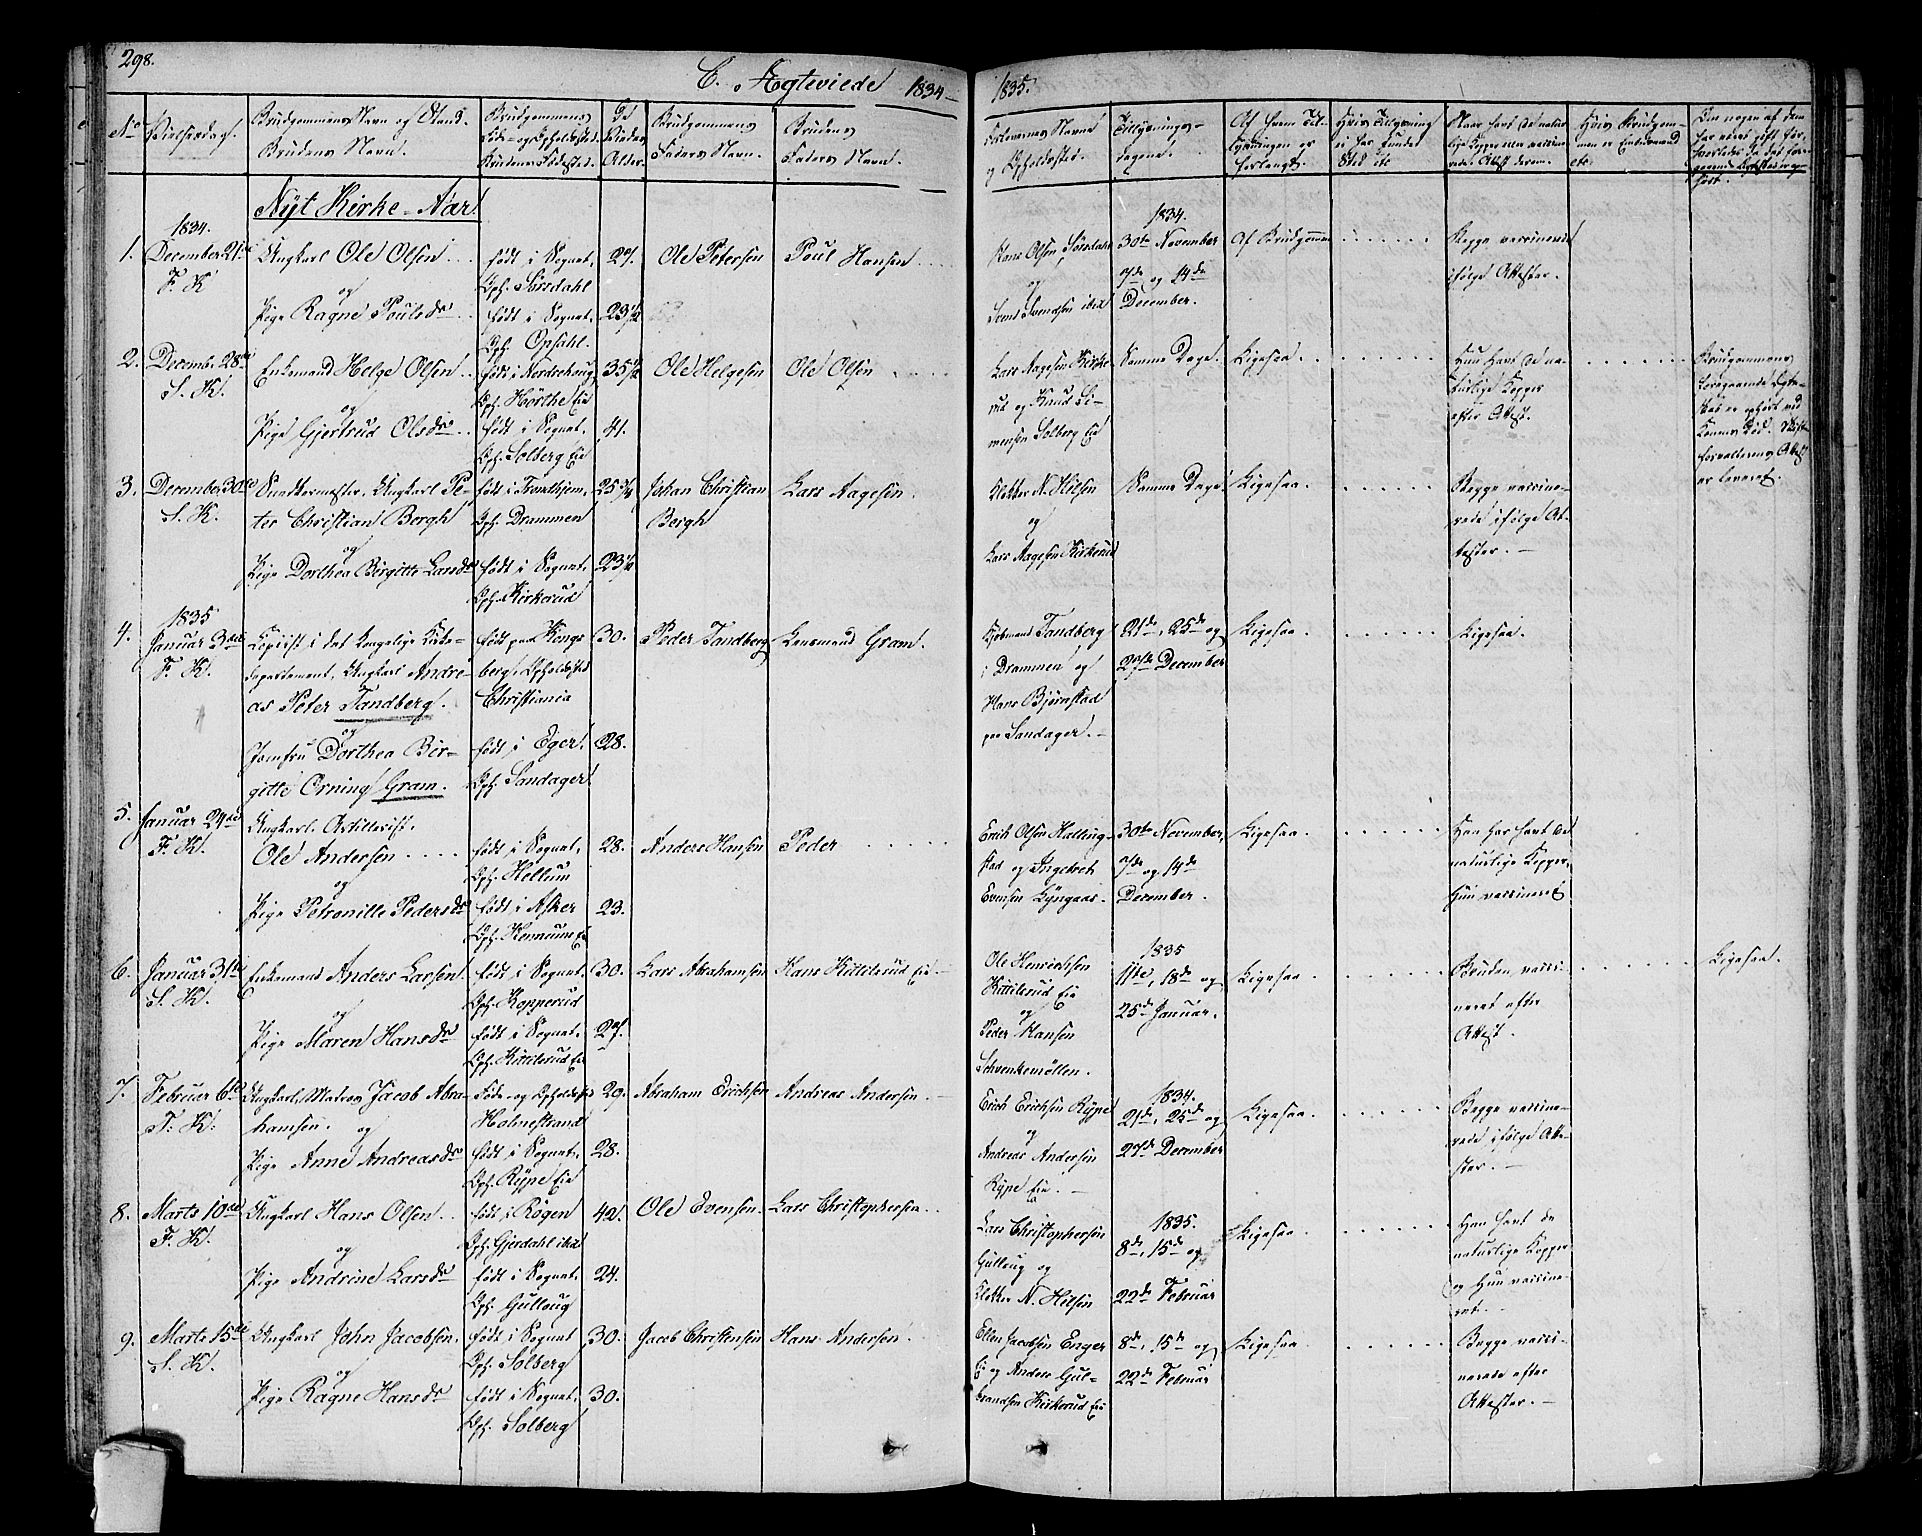 298.
C. Ægteviede 1834—
1835.
No
Vielsesdag.
Brudgommens Navn og Stand.
Brudens Navn.
Brudgommens
Føde- og Opholdssted.
Brudens Fødested.
Alder
Brudgommens
Faders Navn.
Brudens
Faders Navn.
Forlovernes Navne
og Opholdssted.
Tillysnings-
dagene.
Af hvem Til-
lysningen er
forlangt.
Nyt Kirke-Aar.
1834.
1. December 21de
F. K.
Ungkarl Ole Olsen
og
Pige Ragne Poulsdr
født i Sognet,
Oph. Sørsdahl
født i Sognet,
Oph. Opsahl.
27.
23 1/2
Ole Petersen
Poul Hansen
Hans Olsen Sørsdahl
og
Svend Svendsen ibid
1834.
30te November
7de og 14de
December.
Af Brudgommen
Begge vaccinerede
ifølge Attester.
2. December 28de
S. K.
Enkemand Helge Olsen
og
Pige Gjertrud Olsdr
født i Norderhoug
Oph. Hørthe Eie
født i Sognet.
Oph. Solberg Eie
35 1/2
41.
Ole Helgesen
Ole Olsen
Lars Aagesen Kirke-
rud og Knud Si-
mensen Solberg Eie
Samme Dage.
Ligesaa.
Hun havt de na-
turlige Kopper
efter Attest.
Brudgommens
foregaaende Ægte-
skab er ophørt ved
Konens Død. Skifte-
forvalterens Attest
er leveret.
3. December 30te
S. K.
Ungkarl Pe-
ter Christian Borgh
og
Pige Dorthea Birgitte Larsdr
født i Trondhjem,
Oph. Drammen
født i Sognet,
Oph. Kirkerud
25 3/4
23 1/2
Johan Christian
Borgh
Lars Aagesen.
Klokker N. Hilsen
og
Lars Aagesen Kirkerud
Samme Dage.
Ligesaa.
Begge vaccine-
rede ifølge At-
tester. —
1835
4. Januar 3die
F. K.
Copiist i det kongelige Kirke-
departement, Ungkarl Andre-
as Peter Tandberg.
og
Jomfru Dorthea Bir-
gitte Orning Gram.
født paa Kongs-
berg, Opholdssted
Christiania
født i Eger,
Oph. Sandager
30.
28.
Peder Tandberg
Lensmand Gram.
Kjøbmand Tandberg
i Drammen og
Hans Bjørnstad
paa Sandager. —
21de, 25de og
27de December
Ligesaa
Ligesaa.
5. Januar 29de
F. K.
Ungkarl, Artillerist,
Ole Andersen
og
Pige Petronille Pedersdr
født i Sognet,
Oph. Hellum
født i Asker
28.
23.
Anders Hansen
Peder
Erich Olsen Halling-
stad og Ingebret
Evensen Lyngaas.
30te November,
7de og 14de
December.
Ligesaa
Han har havt de
naturlige Kopper,
Hun vaccineret
6. Januar 31te
S. K.
Enkemand Anders Larsen
og
Pige Maren Hansdr
født i Sognet,
Oph. Kopperud
født i Sognet.
Oph. Kittilsrud Eie
30.
27.
Lars Abrahamsen
Hans Kittelsrud Eie
Ole Henrichsen
Kittilsrud Eie
og
Peder Hansen
Schvenkemøllen.
1835
11te, 18de og
25de Januar.
Ligesaa
Bruden vacci-
neret efter
Attest.
Ligesaa.
7. Februar 6te
F. K.
Ungkarl, Matros Jacob Abra-
hamsen. og
Pige Anne Andreasdr
Føde- og Opholdssted
Holmestrand
født i Sognet,
Oph. Rype Eie
29.
28.
Abraham Erichsen
Andreas Andersen
Erich Erichsen Rype
og
Andreas Andersen
Rype Eie. —
1834.
21de, 25de og
27de December
Ligesaa
Begge vaccine-
rede ifølge Atte-
ster. —
8. Marts 10de
F. K.
Ungkarl Hans Olsen
og
Pige Andrine Larsdr
født i Røgen
Oph. Gjerdahl ibid
født i Sognet.
Oph. Gulloug
42.
24.
Ole Evensen
Lars Christophersen
Lars Christophersen
Gulloug og
Klokker N. Hilsen
1835.
8de, 15de og
22de Februar
Ligesaa
Han havt de
naturlige Kopper
og Hun vaccine-
ret.
9. Marts 15de
S. K.
Ungkarl John Jacobsen
og
Pige Ragne Hansdr
født i Sognet
Oph. Solberg
født i Sognet.
Oph. Solberg
30.
30.
Jacob Christensen
Hans Andersen
Ellen Jacobsen Enger
Ei og Anders Gul-
brandsen Kirkerud Eie
8de, 15de og
22de Februar
Ligesaa
Begge vacci-
nerede efter
Attester. —